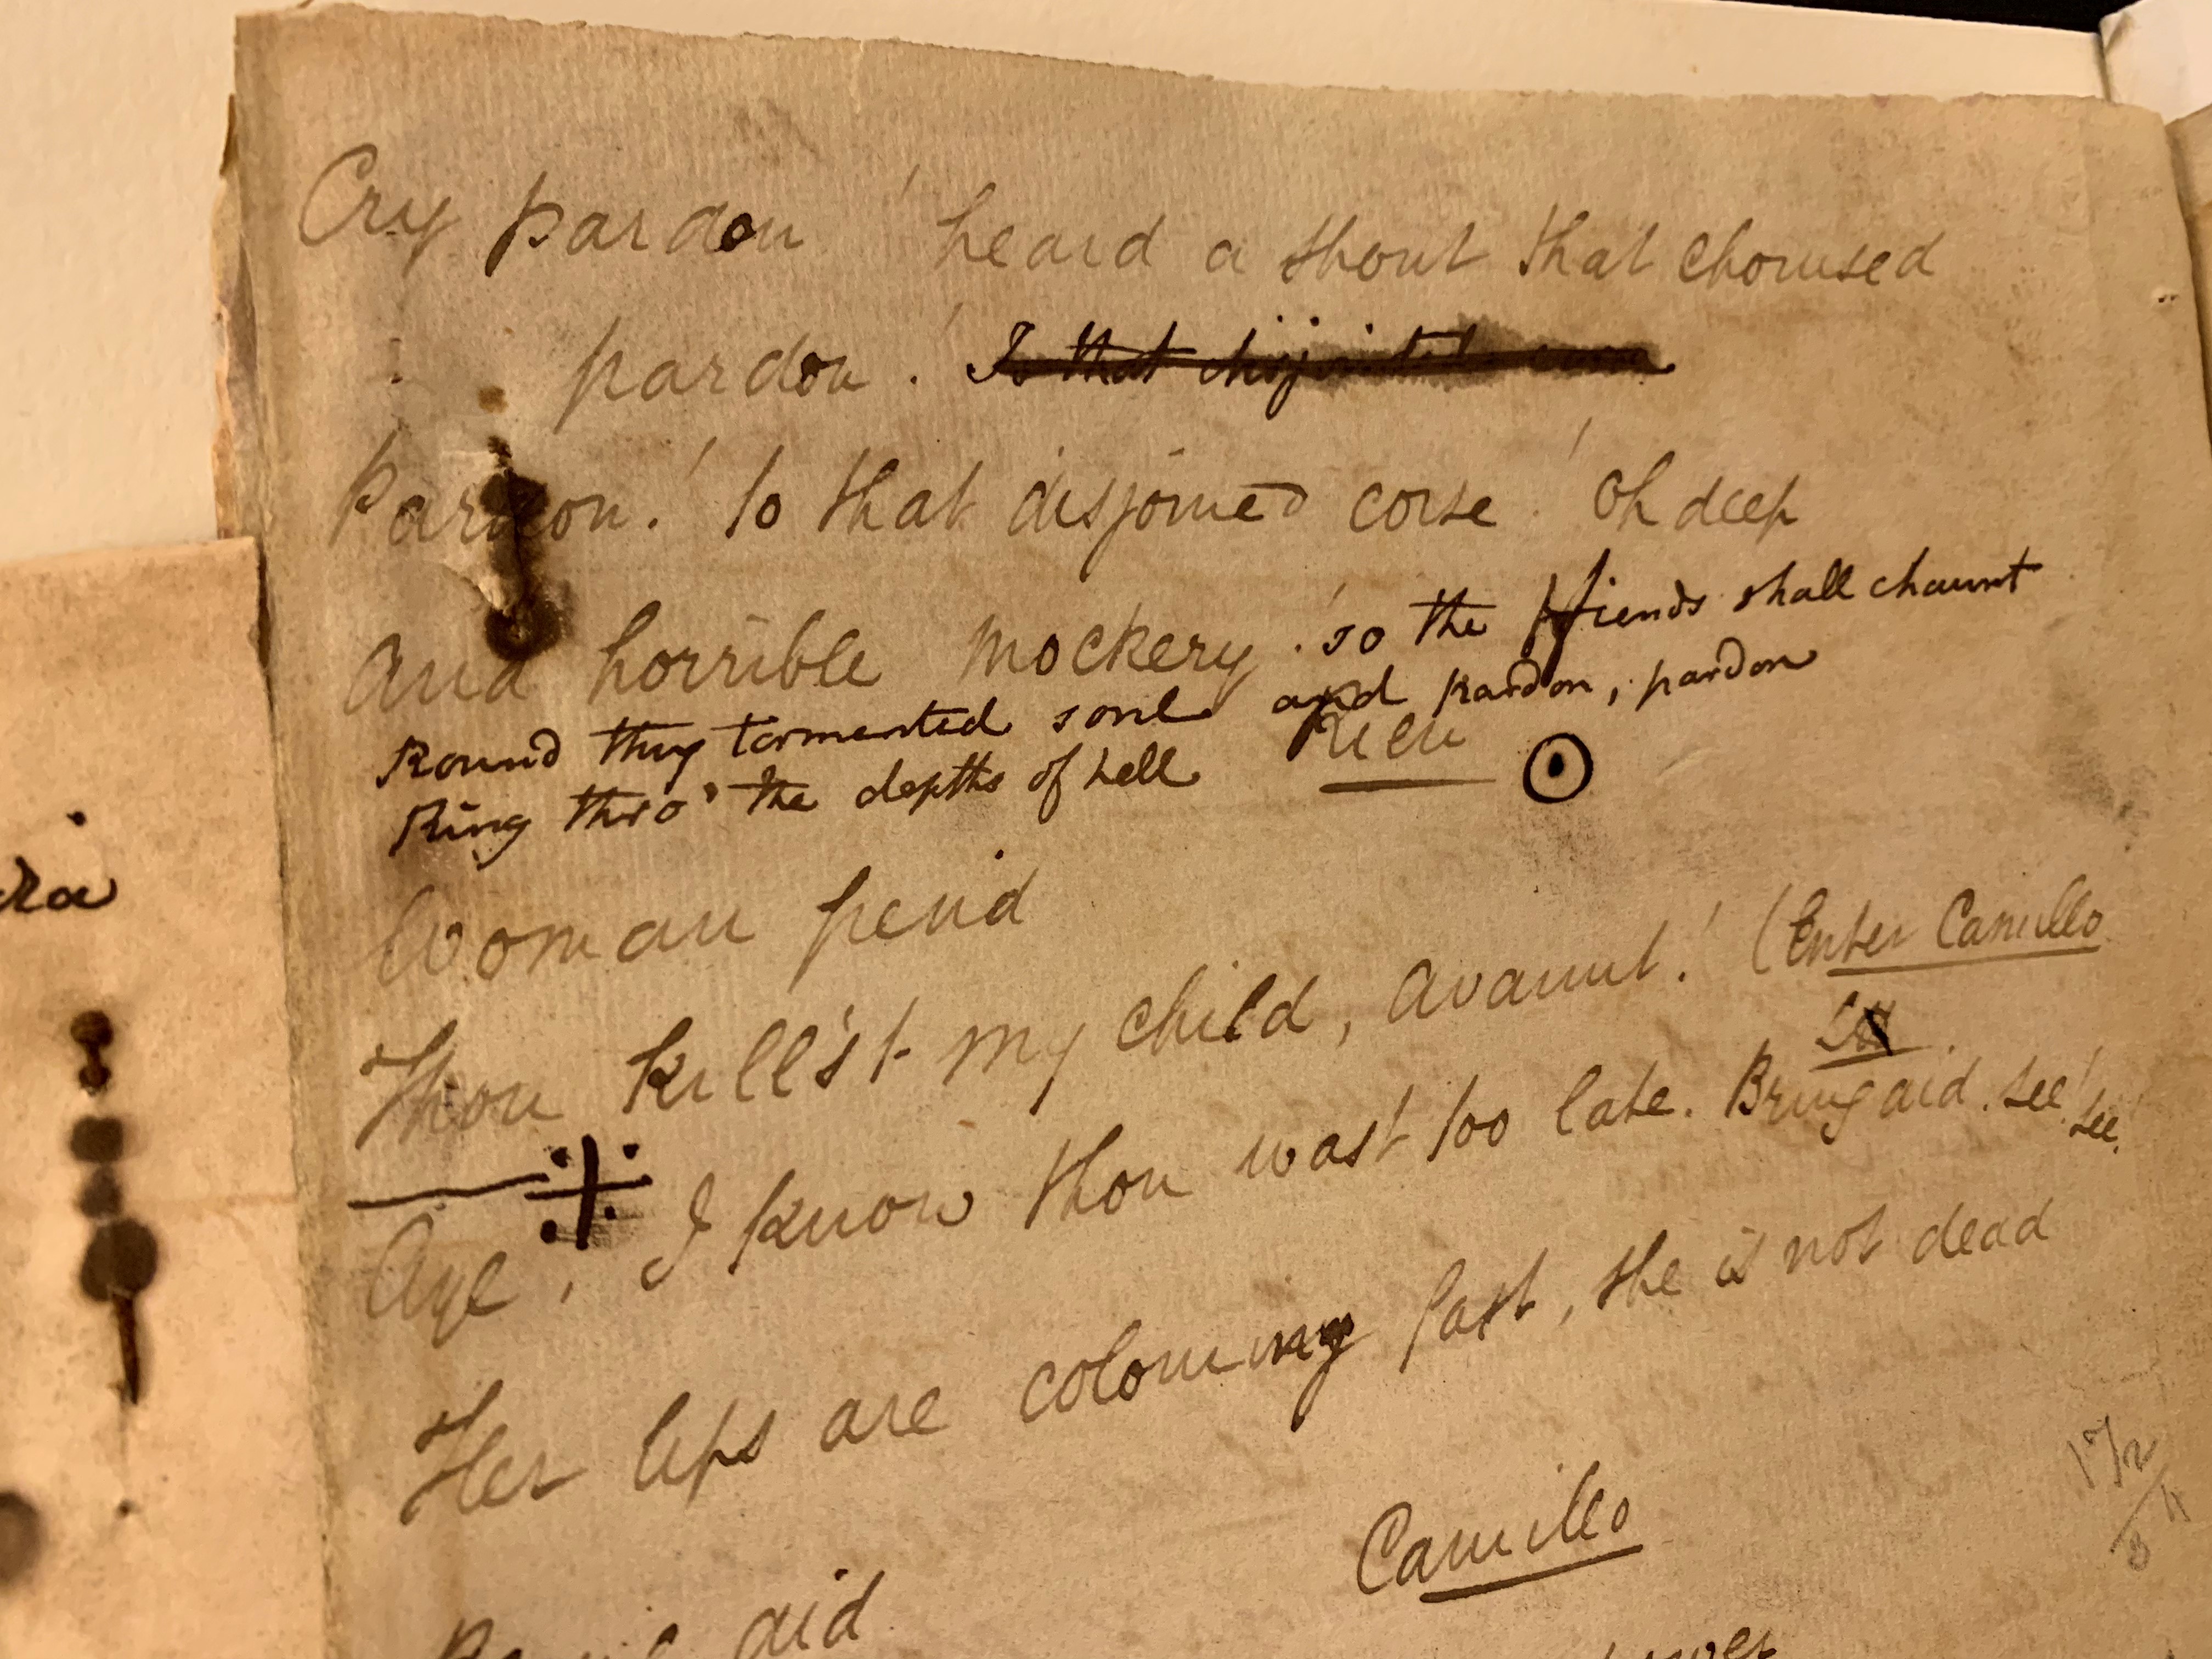 Cry pardon! heard a shout that chorused
pardon! To that disjointed corse
Pardon! to that disjoined corse! Oh deep
And horrible mockery! so the fiends shall chaunt
Round thy tormented soul and pardon, pardon
Ring thro' the depths of hell
Woman fiend
Thou kill'st my child, avaunt! (Enter Camillo
Aye, I know thou wast too late. Bring aid. see! see!
Her lips are colouring fast, she is not dead
Camillo
aid
dra